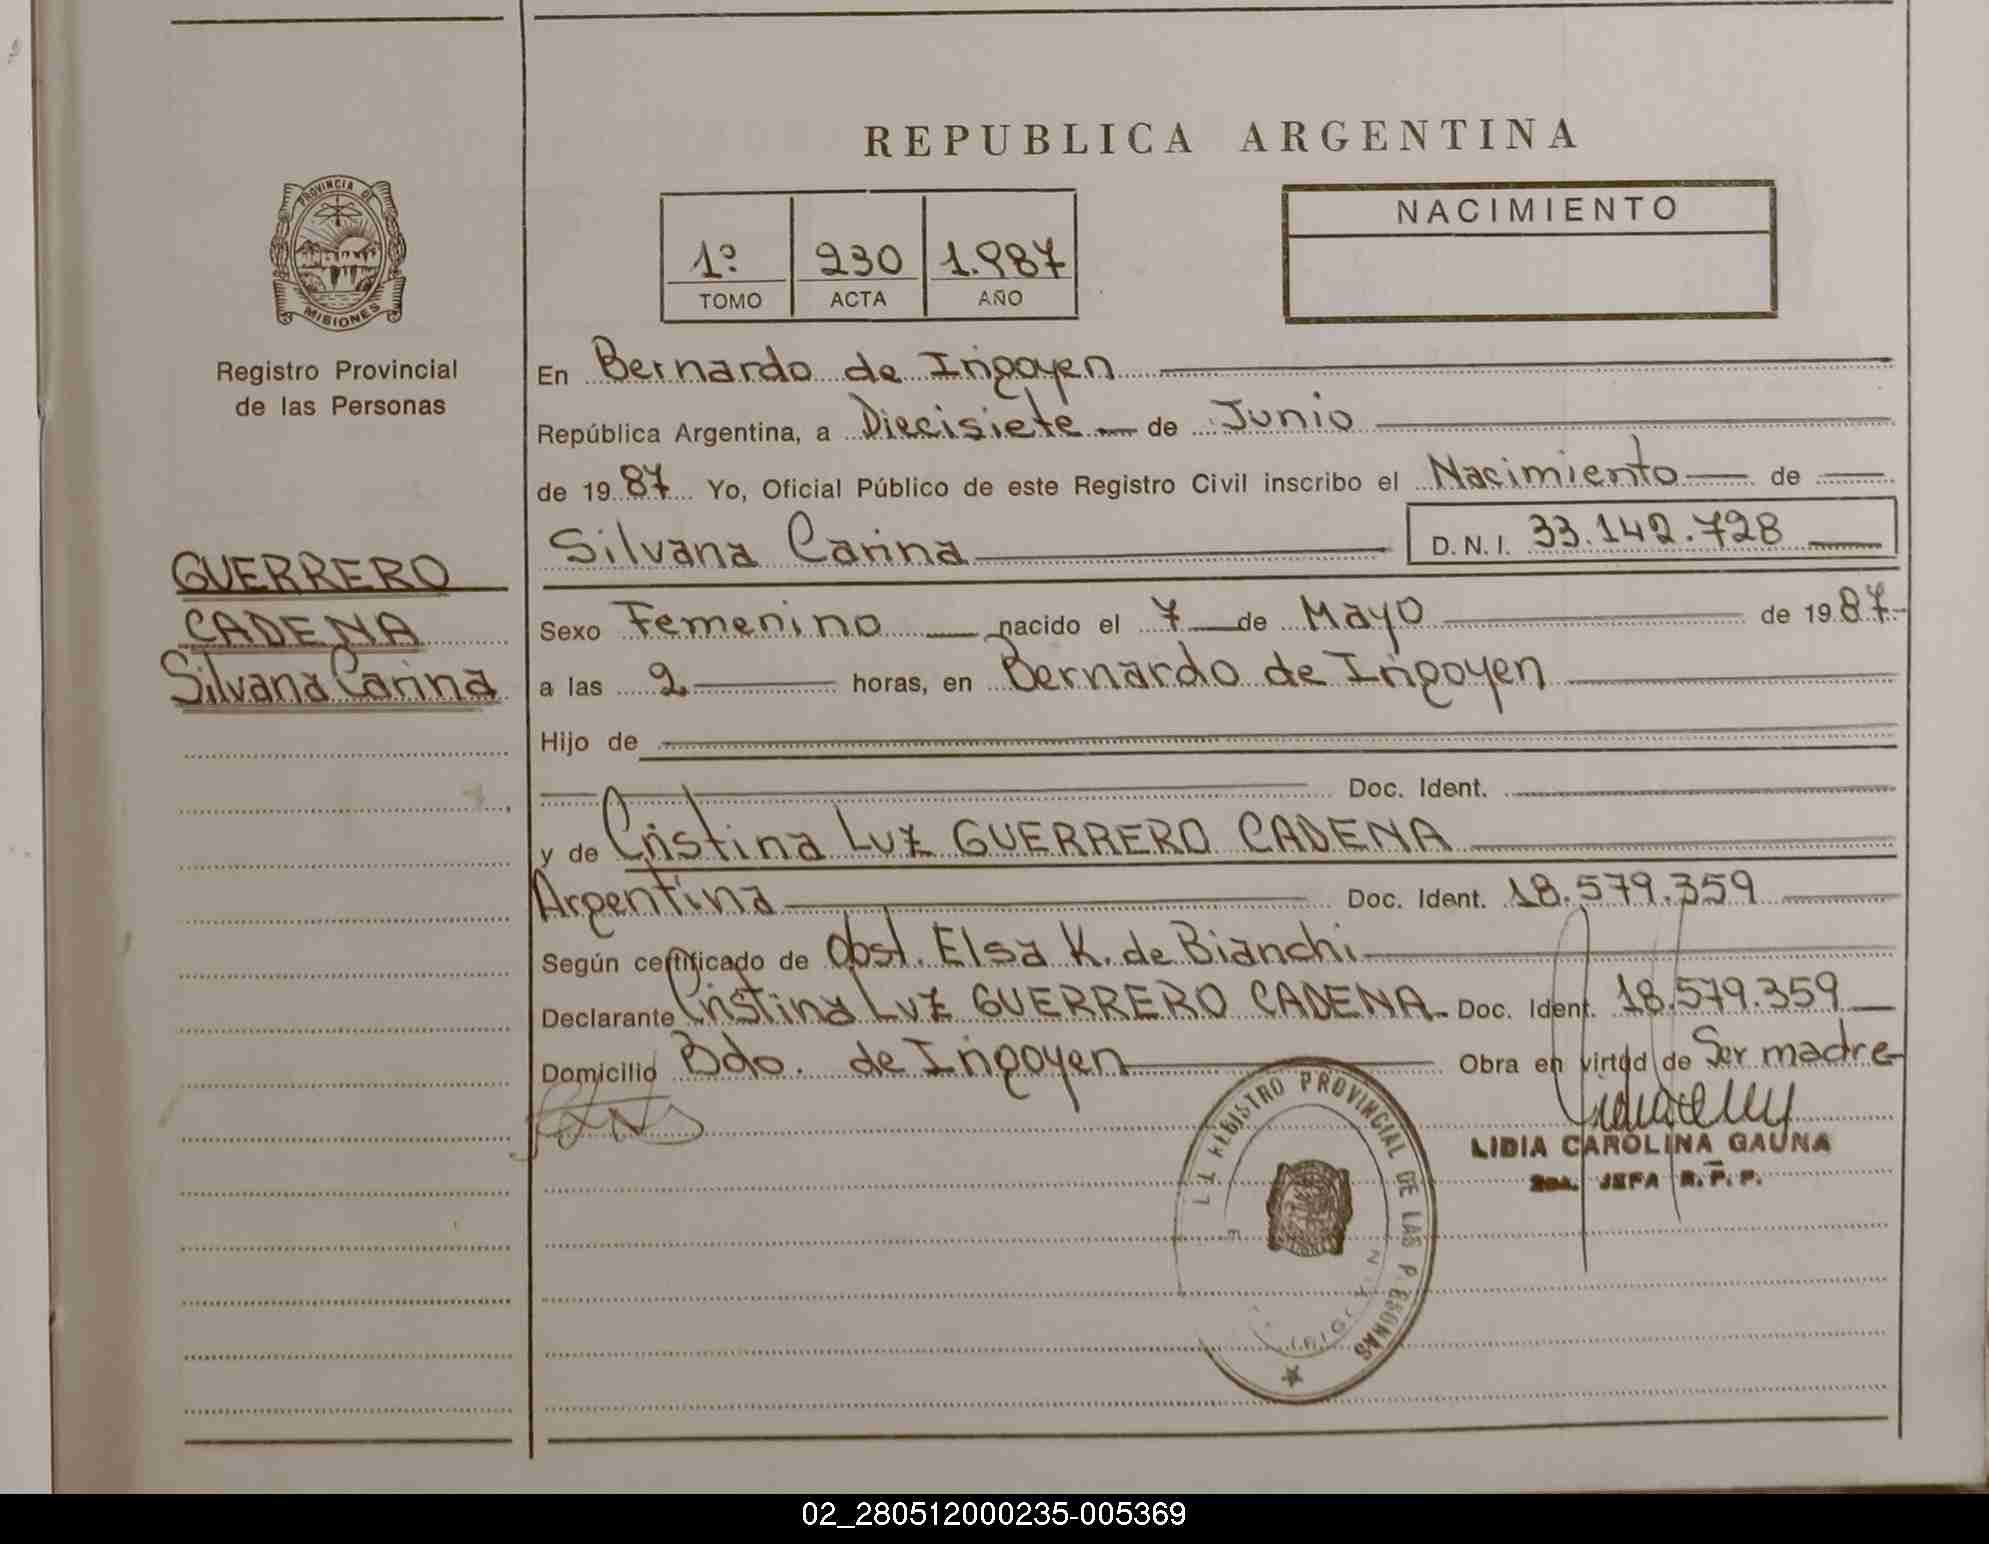 REPUBLICA ARGENTINA
PROVINCIA DE
MISIONES
Registro Provincial
de las Personas
1º 230 1.987
TOMO ACTA AÑO
NACIMIENTO
En Bernardo de Irigoyen
República Argentina, a Diecisiete de Junio
de 1987 Yo, Oficial Público de este Registro Civil inscribo el Nacimiento de
Silvana Carina D.N.I. 33.142.728
GUERRERO
CADENA
Silvana Carina
Sexo Femenino nacido el 7 de Mayo de 1987
a las 2 horas, en Bernardo de Irigoyen
Hijo de
Doc. Ident.
y de Cristina Luz GUERRERO CADENA
Argentina Doc. Ident. 18.579.359
Según certificado de Obst. Elsa K. de Bianchi
Declarante Cristina Luz GUERRERO CADENA Doc. Ident. 18.579.359
Domicilio Bdo. de Irigoyen Obra en virtud de Ser madre
LIDIA CAROLINA GAUNA
2da. JEFA R.P.P.
REGISTRO PROVINCIAL DE LAS PERSONAS
02_280512000235-005369